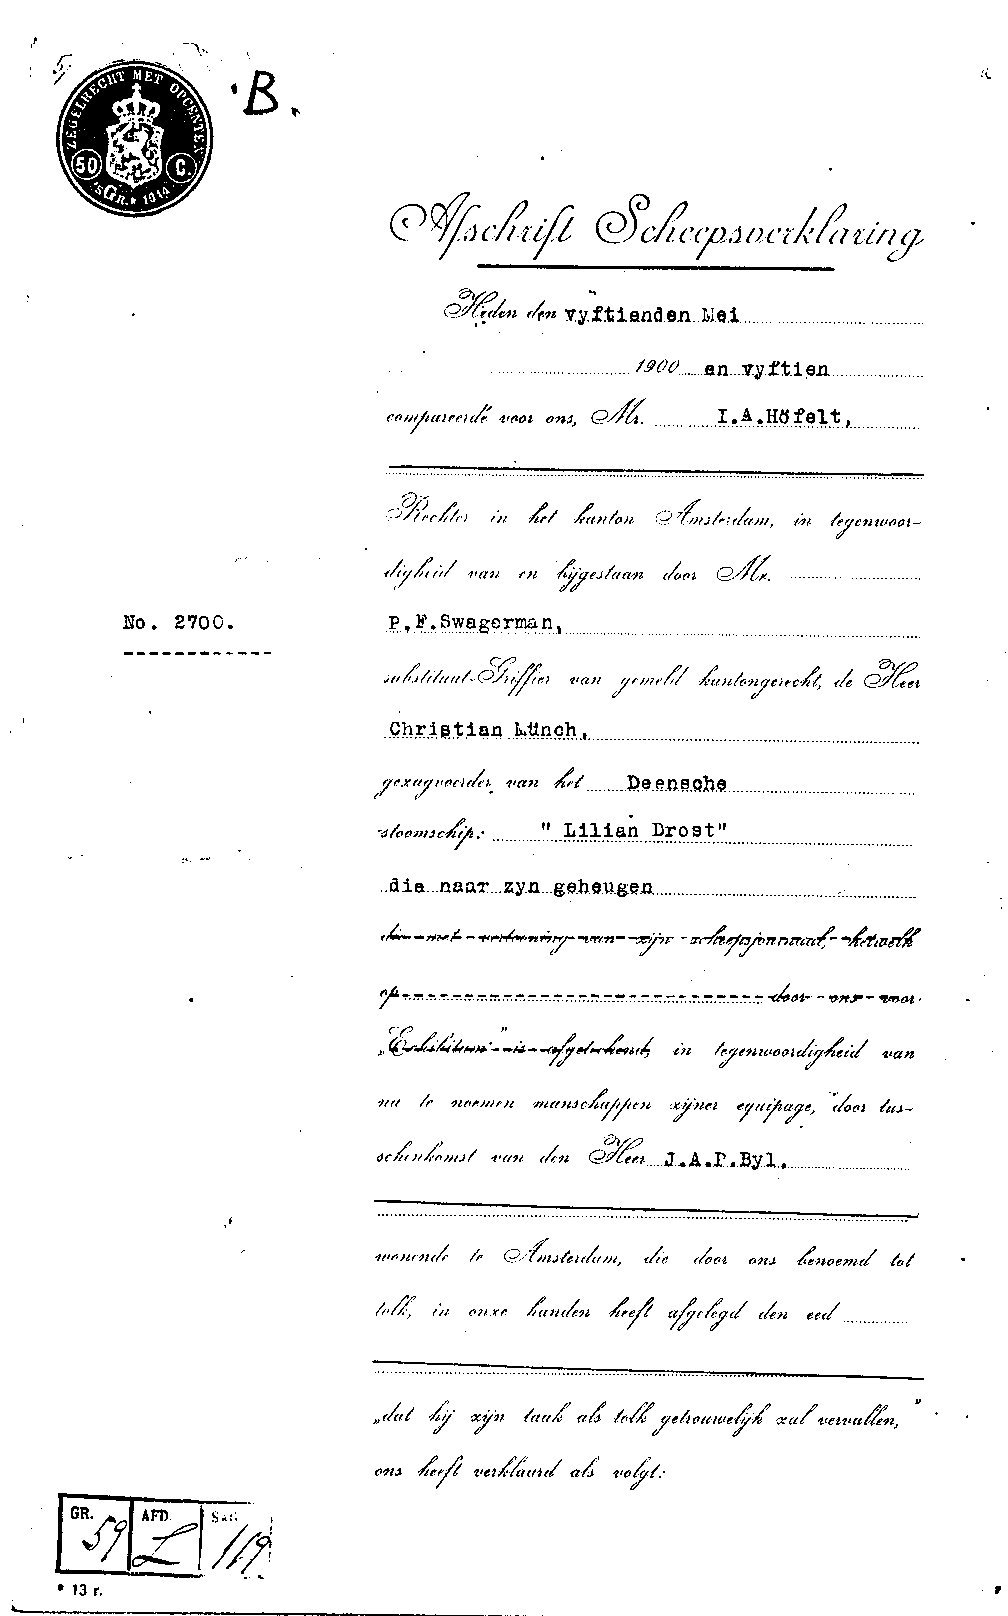 ZEGELRECHT MET OPCENTEN
50 C.
GR. * 1914
B.
Afschrift Scheepsverklaring
Heden den vyftienden Mei
1900 en vyftien
compareerde voor ons, Mr. I.A.Höfelt,
Rechter in het kanton Amsterdam, in tegenwoor-
digheid van en bijgestaan door Mr.
No. 2700.
P.F.Swagerman,
substituut-Griffier van gemeld kantongerecht, de Heer
Christian Münch,
gezagvoerder van het Deensche
stoomschip: " Lilian Drost"
die naar zyn geheugen
die met vertooning van zijn scheepsjournaal, hetwelk
op door ons voor
„Exhibitum" is afgeteekend, in tegenwoordigheid van
na te noemen manschappen zijner equipage, door tus-
schenkomst van den Heer J.A.P.Byl.
wonende te Amsterdam, die door ons benoemd tot
tolk, in onze handen heeft afgelegd den eed
„dat hij zijn taak als tolk getrouwelijk zal vervullen,"
ons heeft verklaard als volgt:
GR. 59 AFD. L 119
* 13 r.